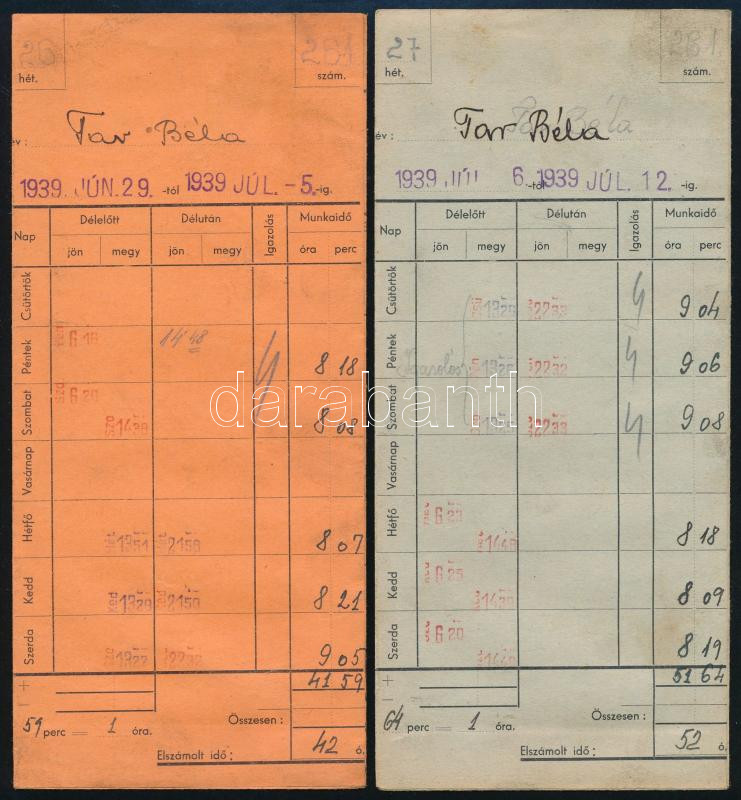 26 281
hét. szám.
év: Tar Béla
1939 JÚN. 29. -tól 1939 JÚL. -5. -ig.
Nap Délelőtt Délután Igazolás Munkaidő
jön megy jön megy óra perc
Csütörtök
Péntek 6 18 14 48 8 18
Szombat Szo 6 20 Szo 14 28 8 08
Vasárnap
Hétfő 13 51 21 58 8 07
Kedd Ked 13 29 21 50 8 21
Szerda 13 27 22 32 9 05
+ 41 59
–
59 perc = 1 óra. Összesen:
Elszámolt idő: 42 ó.
27 281
hét. szám.
év: Tar Béla
1939 JÚL 6. -tól 1939 JÚL. 12. -ig.
Nap Délelőtt Délután Igazolás Munkaidő
jön megy jön megy óra perc
Csütörtök 13 28 22 32 9 04
Péntek 13 26 22 32 9 06
Szombat 22 33 9 08
Vasárnap
Hétfő 6 23 14 48 8 18
Kedd 6 25 14 38 8 09
Szerda 6 20 14 48 8 19
+ 51 64
–
64 perc = 1 óra. Összesen:
Elszámolt idő: 52 ó.
darabanth